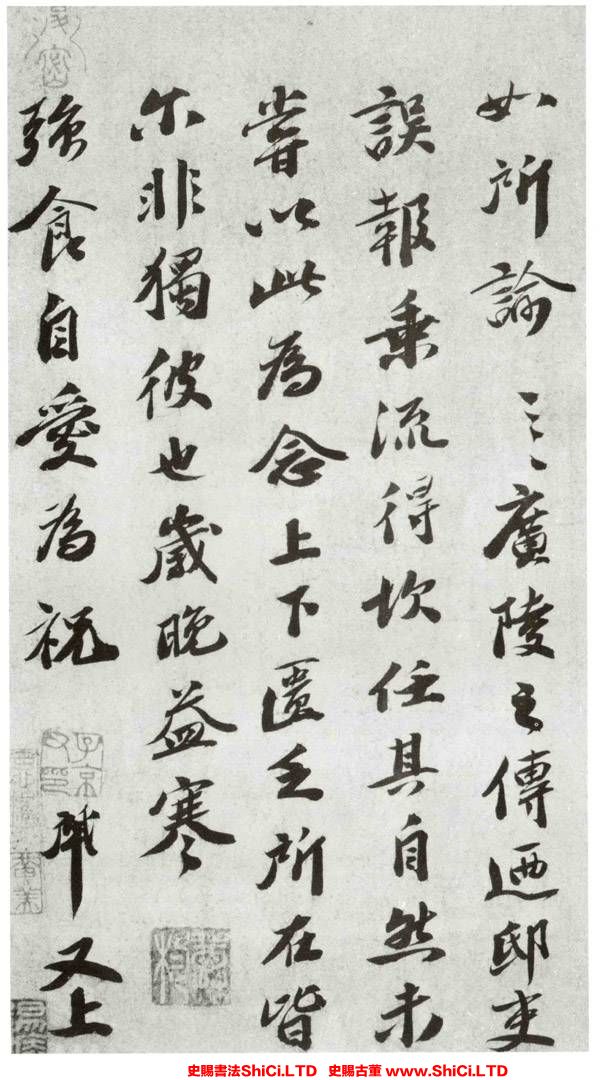 如所諭之廣陵之傳迺邸吏
誤報乗流得坎任其自然未
嘗以此為念上下匱乏所在皆
尔非獨彼也歲晚益寒
強食自愛為祝
又上
史賜書法ShiCi.LTD 史賜古董 www.ShiCi.LTD